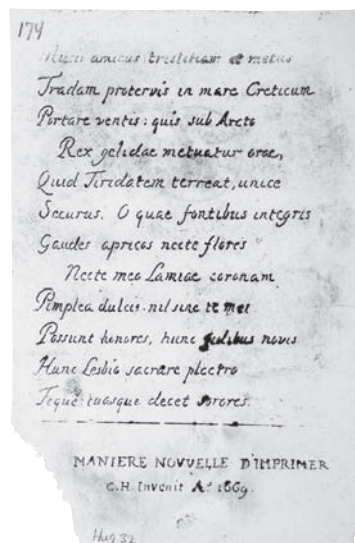 174
Musis amicus tristitiam et metus
Tradam protervis in mare Creticum
Portare ventis: quis sub Arcto
Rex gelidae metuatur orae,
Quid Tiridatem terreat, unice
Securus. O quae fontibus integris
Gaudes apricos necte flores
Necte meo Lamiae coronam
Pimplea dulcis. nil sine te mei
Possunt honores, hunc fidibus novis
Hunc Lesbio sacrare plectro
Teque tuasque decet sorores.
MANIERE NOVVELLE D'IMPRIMER
C.H. Invenit Ao. 1669.
Hug 32